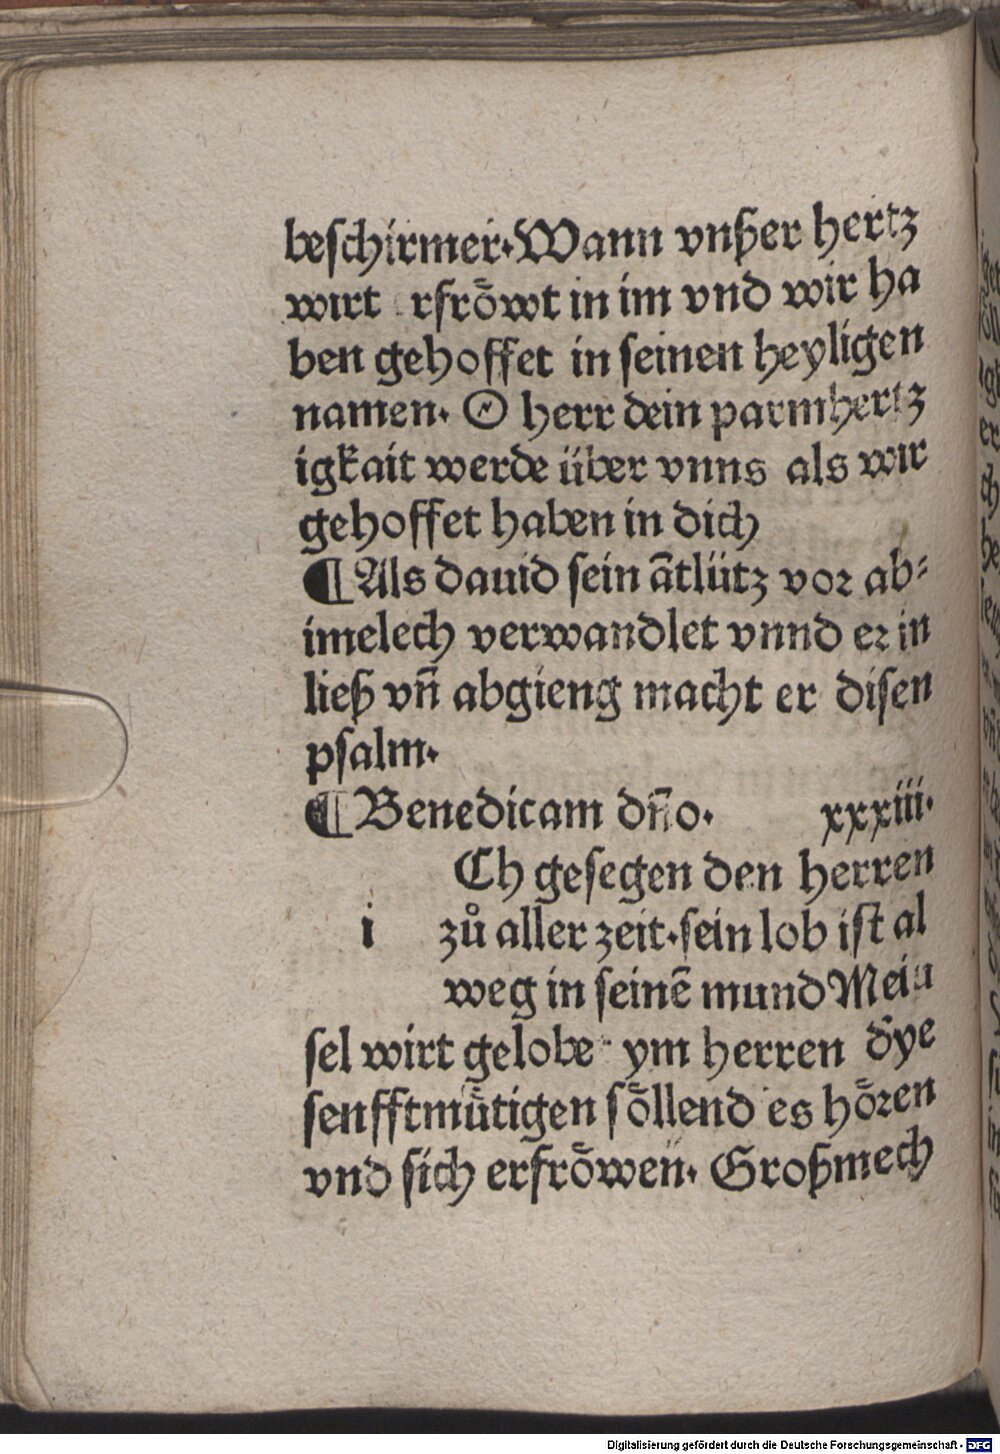 beschirmer. Wann vnßer hertz
wirt rfrőwt in im vnd wir ha
ben gehoffet in seinen heyligen
namen. O herr dein parmhertz
igkait werde über vnns als wir
gehoffet haben in dich
¶ Als dauid sein ātlütz vor ab⸗
imelech verwandlet vnnd er in
ließ vn̄ abgieng macht er disen
psalm.
¶ Benedicam dn̄o. xxxiii.
Ch gesegen den herren
i zů aller zeit. sein lob ist al
weg in seinē mund Mein
sel wirt gelobe ym herren dye
senfftmütigen söllend es hören
vnd sich erfröwen. Großmech
Digitalisierung gefördert durch die Deutsche Forschungsgemeinschaft - DFG